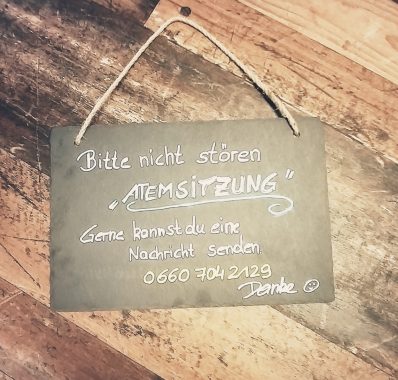 Bitte nicht stören
„ATEMSITZUNG"
Gerne kannst du eine
Nachricht senden.
0660 704 2129
Danke ☺